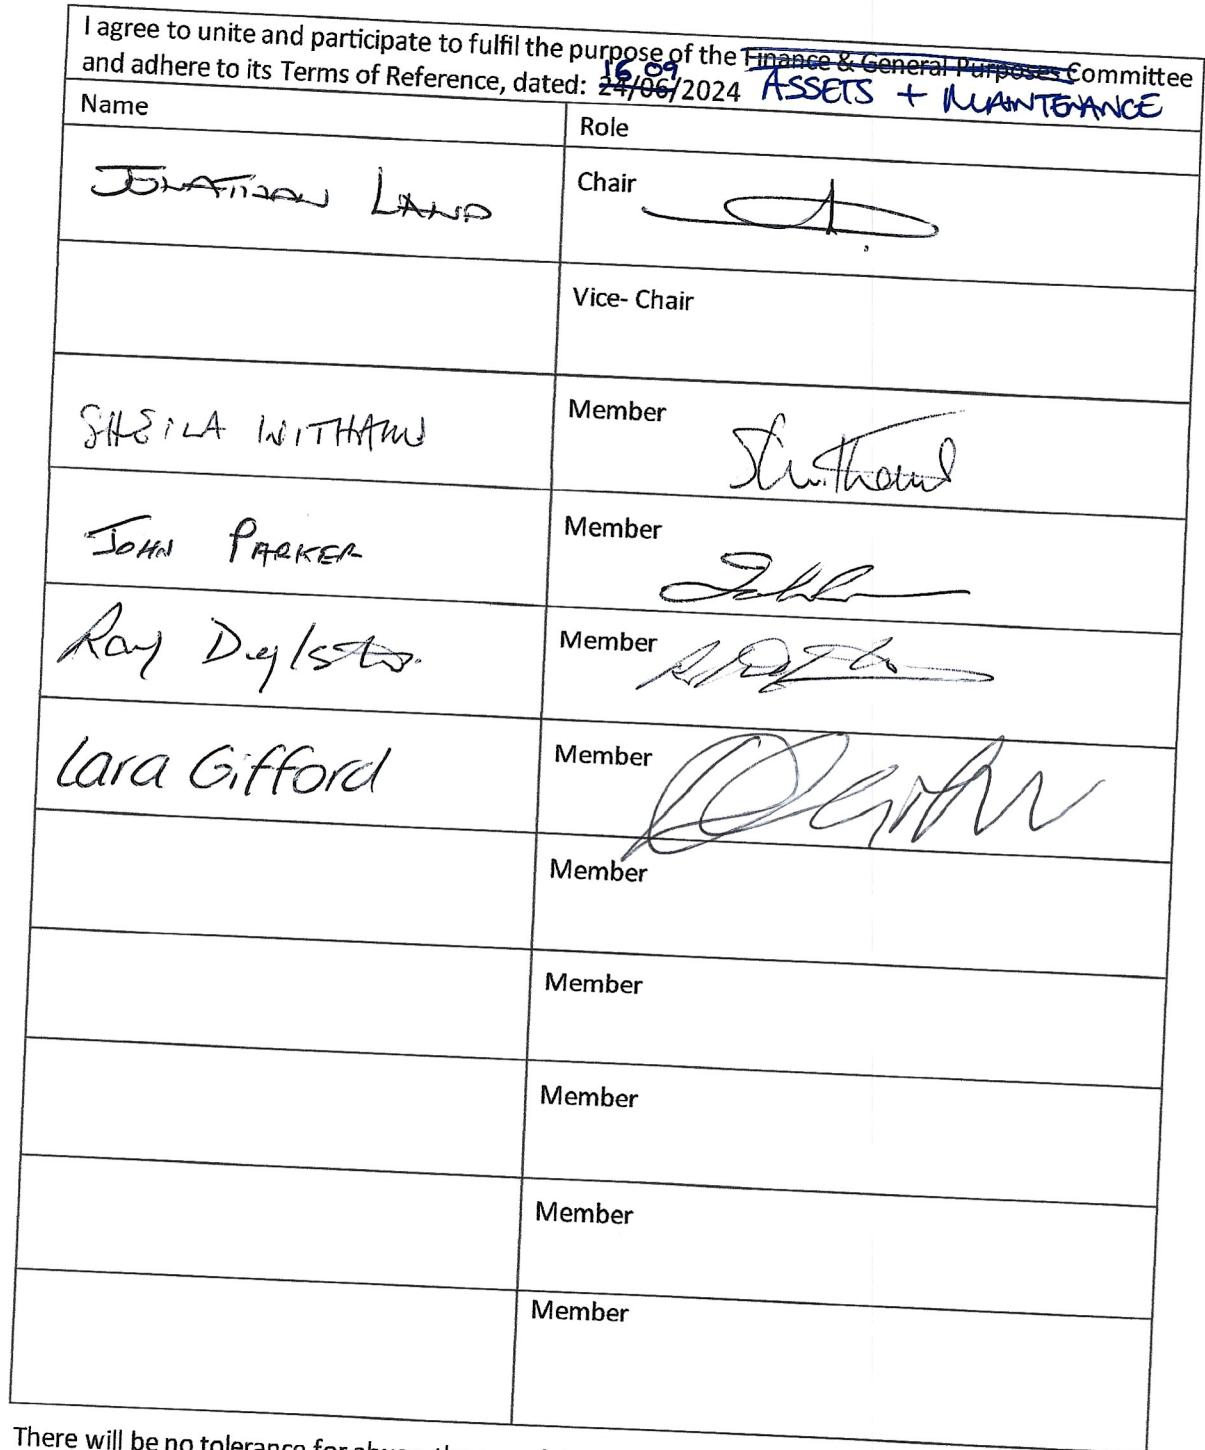 I agree to unite and participate to fulfil the purpose of the Finance & General Purposes Committee
16 09
and adhere to its Terms of Reference, dated: 24/06/2024 ASSETS + MAINTENANCE
Name Role
JONATHAN LAND Chair
Vice- Chair
SHEILA WITHAM Member
JOHN PARKER Member
Ray Member
Lara Gifford Member
Member
Member
Member
Member
Member
There will be no tolerance for